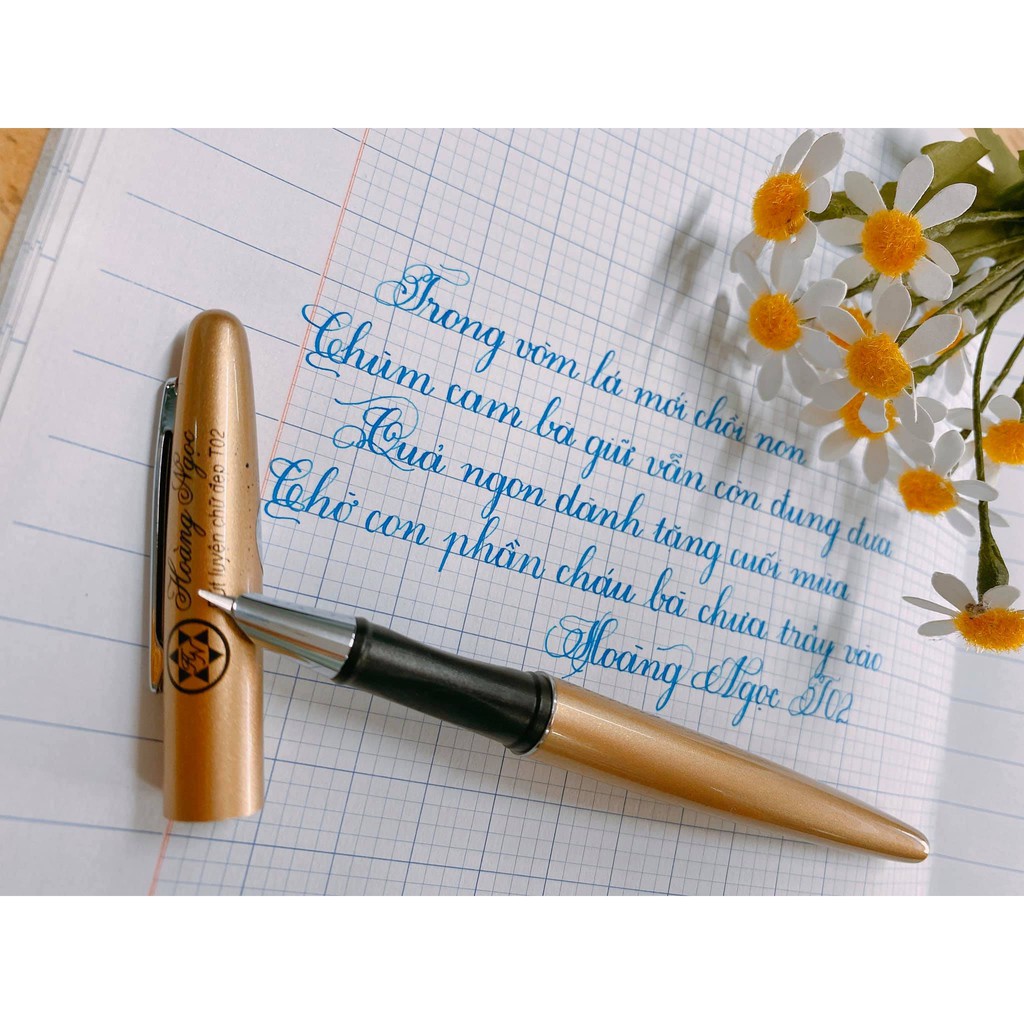 Trong vòm lá mới chồi non
Chùm cam bà giữ vẫn còn đung đưa
Quả ngon dành tặng cuối mùa
Chờ con phần cháu bà chưa trảy vào
Hoàng Ngọc T02
Hoàng Ngọc
luyện chữ đẹp T02